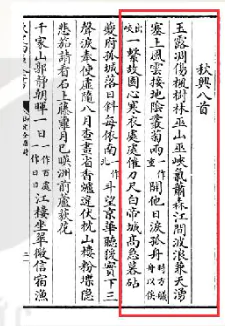 秋興八首
玉露凋傷楓樹林巫山巫峽氣蕭森江間波浪兼天湧
塞上風雲接地陰叢菊兩一作重開他日淚孤舟時方艤舟以俟
出峽一繫故園心寒衣處處催刀尺白帝城高急暮砧
夔府孤城落日斜每依南一作北斗望京華聽猿實下三
聲淚奉使虛隨八月查畫省香爐違伏枕山樓粉堞隱
悲笳請看石上藤蘿月已映洲前蘆荻花
千家山郭靜朝暉一日一作百處一作日日江樓坐翠微信宿漁